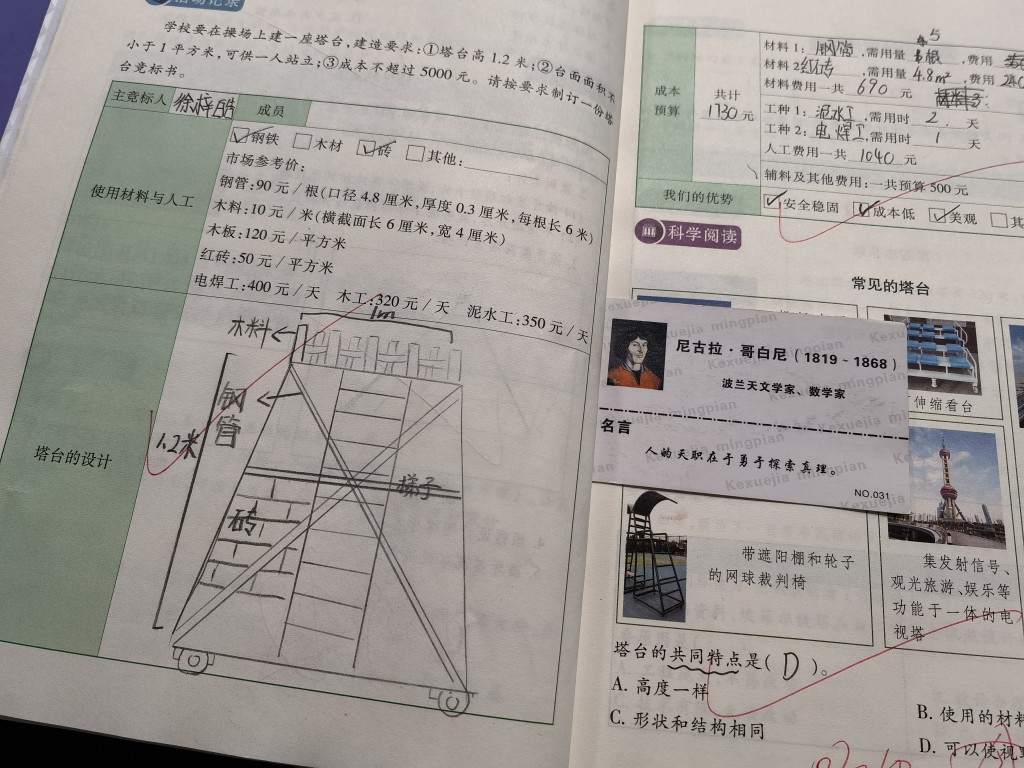 活动记录
学校要在操场上建一座塔台,建造要求:①塔台高1.2米;②台面面积不
小于1平方米,可供一人站立;③成本不超过5000元。请按要求制订一份塔
台竞标书。
主竞标人
成员
使用材料与人工
钢铁 木材 砖 其他:
市场参考价:
钢管:90元/根(口径4.8厘米,厚度0.3厘米,每根长6米)
木料:10元/米(横截面长6厘米,宽4厘米)
木板:120元/平方米
红砖:50元/平方米
电焊工:400元/天 木工:320元/天 泥水工:350元/天
塔台的设计
1m
木料
钢管
1.2米
砖
梯子
成本
预算
共计
1730元
材料1:钢管,需用量5根,费用
材料2红砖,需用量4.8m²,费用
材料费用一共690元
工种1:泥水工,需用时2天
工种2:电焊工,需用时1天
人工费用一共1040元
辅料及其他费用:一共预算500元
我们的优势
安全稳固 成本低 美观 其
科学阅读
常见的塔台
Kexuejia mingpian
尼古拉·哥白尼(1819~1868)
波兰天文学家、数学家
名言
人的天职在于勇于探索真理。
NO.031
伸缩看台
带遮阳棚和轮子
的网球裁判椅
集发射信号、
观光旅游、娱乐等
功能于一体的电
视塔
塔台的共同特点是(D)。
A. 高度一样
B. 使用的材料
C. 形状和结构相同
D. 可以使视